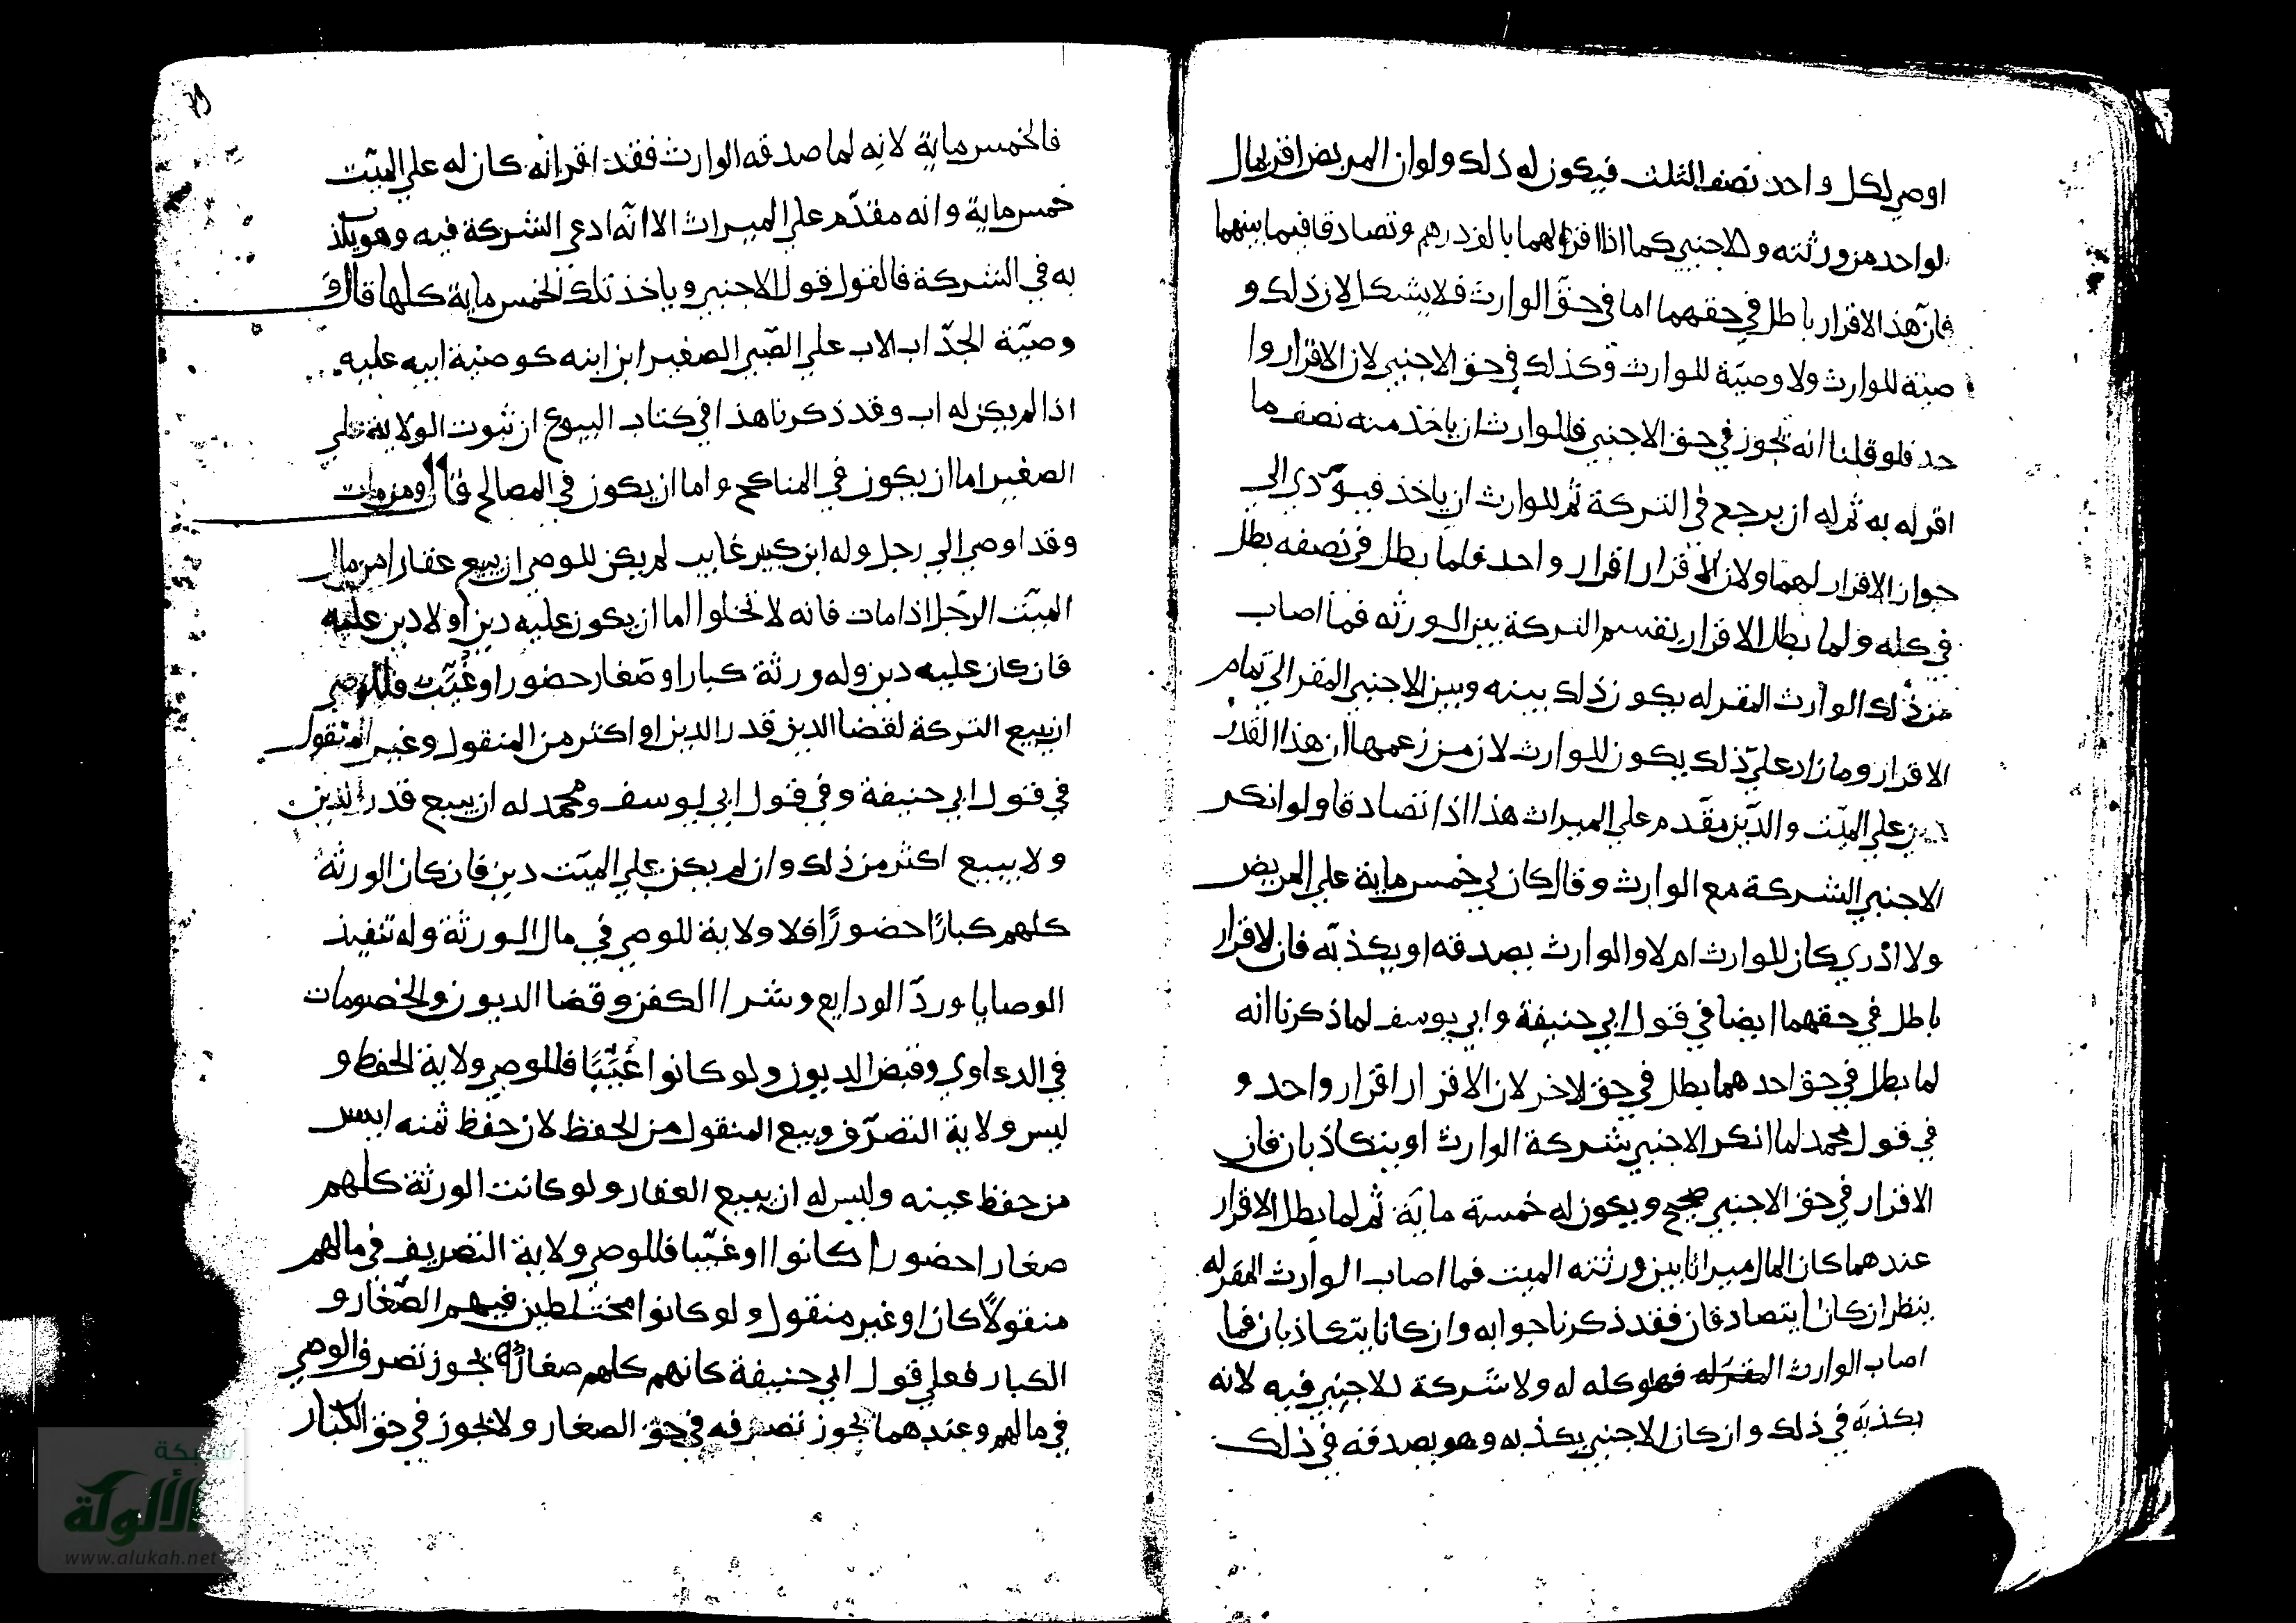 اوصي لكل واحد نصف الثلث فيكون له ذلك ولو ان المريض اقر بمال
لواحد من ورثته والاجنبي كما اذا اقر لهما بالف درهم وتصادقا فيما بينهما
فان هذا الاقرار باطل في حقهما اما في حق الوارث فلا يشكل لان ذلك و
صية للوارث ولا وصية للوارث وكذلك في حق الاجنبي لان الاقرار وا
حد فلو قلنا انه يجوز في حق الاجنبي فللوارث ان ياخذ منه نصف ما
اقر له به ثم له ان يرجع في التركة ثم للوارث ان ياخذ فيؤدي الي
جواز الاقرار لهما ولان الاقرار اقرار واحد فلما بطل في نصفه بطل
في كله ولما بطل الاقرار يقسم التركة بين الورثه فما اصاب
من ذلك الوارث المقر له يكون ذلك بينه وبين الاجنبي المقر الي تمام
الاقرار وما زاد علي ذلك يكون للوارث لان من زعمها ان هذا القدر
دين علي الميت والدين مقدم علي الميراث هذا اذا تصادقا ولو انكر
الاجنبي الشركة مع الوارث وقال كان لي خمس ماية علي المريض
ولا ادري كان للوارث ام لا والوارث يصدقه او يكذبه فان الاقرار
باطل في حقهما ايضا في قول ابي حنيفة وابي يوسف لما ذكرنا انه
لما بطل في حق احدهما بطل في حق الاخر لان الاقرار اقرار واحد و
في قول محمد لما انكر الاجنبي شركة الوارث او يتكاذبان فان
الاقرار في حق الاجنبي صحيح ويكون له خمسة ماية ثم لما بطل الاقرار
عندهما كان المال ميراثا بين ورثته الميت فما اصاب الوارث المقر له
ينظر ان كانا يتصادقان فقد ذكرنا جوابه وان كانا يتكاذبان فما
اصاب الوارث المقر له فهو كله له ولا شركة للاجنبي فيه لانه
يكذبه في ذلك وان كان الاجنبي يكذبه وهو يصدقه في ذلك
٧٩
فالخمس ماية لانه لما صدقه الوارث فقد اقر انه كان له علي الميت
خمس ماية وانه مقدم علي الميراث الا انه ادعي الشركة فيه وهو يكذ
به في الشركة فالقول قول الاجنبي وياخذ تلك الخمس ماية كلها قال و
وصية الجد اب الاب علي الصبي الصغير ابن ابنه كوصية ابيه عليه
اذا لم يكن له اب وقد ذكرنا هذا في كتاب البيوع ان ثبوت الولاية علي
الصغير اما ان يكون في المناكح واما ان يكون في المصالح قال ومن مات
وقد اوصي الي رجل وله ابن كبير غايب لم يكن للوصي ان يبيع عقارا من مال
الميت الرجل اذا مات فانه لا تخلوا اما ان يكون عليه دين او لا دين عليه
فان كان عليه دين وله ورثة كبارا وصغار حضورا او غيب فللوصي
ان يبيع التركة لقضا الدين قدر الدين او اكثر من المنقول وغير المنقول
في قول ابي حنيفة وفي قول ابي يوسف ومحمد له ان يبيع قدر الدين
ولا يبيع اكثر من ذلك وان لم يكن علي الميت دين فان كان الورثة
كلهم كبارًا حضورًا فلا ولاية للوصي في مال الورثة وله تنفيذ
الوصايا ورد الودايع وشرا الكفن وقضا الديون والخصومات
في الدعاوي وقبض الديون ولو كانوا غيبًا فللوصي ولاية الحفظ و
ليس ولاية التصرف وبيع المنقول من الحفظ لان حفظ ثمنه ايسر
من حفظ عينه وليس له ان يبيع العقار ولو كانت الورثة كلهم
صغارا حضورا كانوا او غيبا فللوصي ولاية التصريف في مالهم
منقولاً كان او غير منقول ولو كانوا مختلطين فيهم الصغار و
الكبار فعلي قول ابي حنيفة كانهم كلهم صغارًا يجوز تصرف الوصي
في مالهم وعندهما يجوز تصرفه في حق الصغار ولا يجوز في حق الكبار
شبكة
الألوكة
www.alukah.net